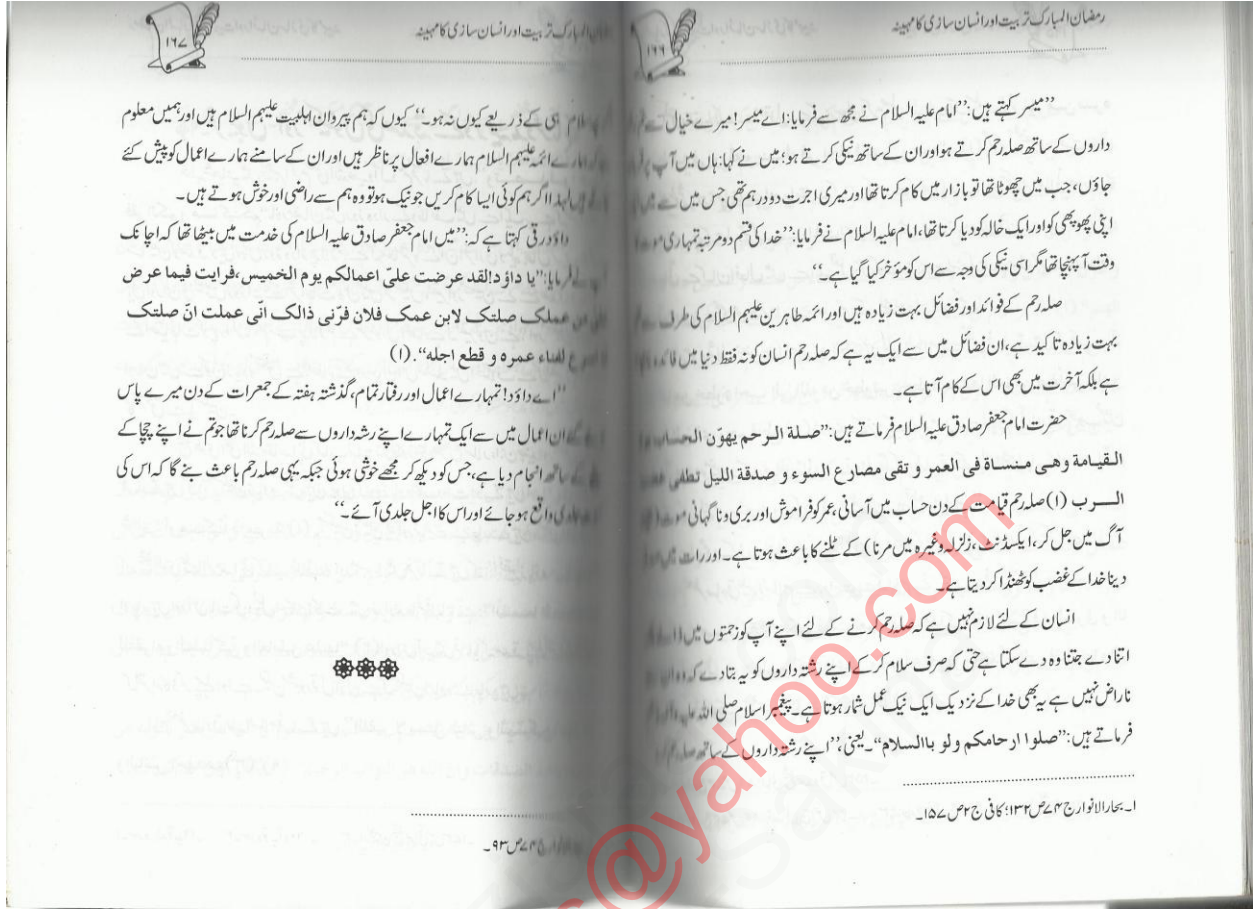 رمضان المبارک تربیت اور انسان سازی کا مہینہ
۱۶۶
”میسر کہتے ہیں:”امام علیہ السلام نے مجھ سے فرمایا: اے میسر! میرے خیال سے
داروں کے ساتھ صلہ رحم کرتے ہو اور ان کے ساتھ نیکی کرتے ہو؛ میں نے کہا: ہاں میں آپ پر
جاؤں، جب میں چھوٹا تھا تو بازار میں کام کرتا تھا اور میری اجرت دو درہم تھی جس میں سے میں
اپنی پھوپھی کو اور ایک خالہ کو دیا کرتا تھا، امام علیہ السلام نے فرمایا:”خدا کی قسم دو مرتبہ تمہاری موت
وقت آ پہنچا تھا مگر اسی نیکی کی وجہ سے اس کو مؤخر کیا گیا ہے۔“
صلہ رحم کے فوائد اور فضائل بہت زیادہ ہیں اور ائمہ طاہرین علیہم السلام کی طرف سے
بہت زیادہ تاکید ہے، ان فضائل میں سے ایک یہ ہے کہ صلہ رحم انسان کو نہ فقط دنیا میں فائدہ
ہے بلکہ آخرت میں بھی اس کے کام آتا ہے۔
حضرت امام جعفر صادق علیہ السلام فرماتے ہیں:”صلة الرحم يهوّن الحساب
القيامة وهى منساة فى العمر و تقى مصارع السوء و صدقة الليل تطفى
الرب (۱) صلہ رحم قیامت کے دن حساب میں آسانی، عمر کو فراموش اور بری و ناگہانی موت
آگ میں جل کر، ایکسڈنٹ، زلزلہ وغیرہ میں مرنا) کے ٹلنے کا باعث ہوتا ہے۔ اور رات میں
دینا خدا کے غضب کو ٹھنڈا کر دیتا ہے۔
انسان کے لئے لازم نہیں ہے کہ صلہ رحم کرنے کے لئے اپنے آپ کو زحمتوں میں
اتنا دے جتنا وہ دے سکتا ہے حتی کہ صرف سلام کر کے اپنے رشتہ داروں کو یہ بتا دے کہ وہ
ناراض نہیں ہے یہ بھی خدا کے نزدیک ایک نیک عمل شمار ہوتا ہے۔ پیغمبر اسلام صلی اللہ علیہ و
فرماتے ہیں:”صلوا ارحامكم ولو باالسلام“۔ یعنی،”اپنے رشتہ داروں کے ساتھ صلہ رحم
۱۔ بحار الانوار ج ۷۴ ص ۱۳۲؛ کافی ج ۲ ص ۱۵۷۔
المبارک تربیت اور انسان سازی کا مہینہ
۱۶۷
سلام ہی کے ذریعے کیوں نہ ہو۔“ کیوں کہ ہم پیروان اہلبیت علیہم السلام ہیں اور ہمیں معلوم
ہمارے ائمہ علیہم السلام ہمارے افعال پر ناظر ہیں اور ان کے سامنے ہمارے اعمال کو پیش کئے
ہیں لہذا اگر ہم کوئی ایسا کام کریں جو نیک ہو تو وہ ہم سے راضی اور خوش ہوتے ہیں۔
داؤد رقی کہتا ہے کہ:”میں امام جعفر صادق علیہ السلام کی خدمت میں بیٹھا تھا کہ اچانک
فرمایا:”یا داؤد! لقد عرضت علیّ اعمالكم يوم الخميس، فرايت فيما عرض
من عملک صلتک لابن عمک فلان فرّنى ذالک انّى عملت انّ صلتک
لفناء عمره و قطع اجله“. (۱)
”اے داؤد! تمہارے اعمال اور رفتار تمام، گذشتہ ہفتہ کے جمعرات کے دن میرے پاس
گئے ان اعمال میں سے ایک تمہارے اپنے رشتہ داروں سے صلہ رحم کرنا تھا جو تم نے اپنے چچا کے
کے ساتھ انجام دیا ہے، جس کو دیکھ کر مجھے خوشی ہوئی جبکہ یہی صلہ رحم باعث بنے گا کہ اس کی
جلدی واقع ہو جائے اور اس کا اجل جلدی آئے۔“
ج ۷۴ ص ۹۳۔
s@yahoo.com